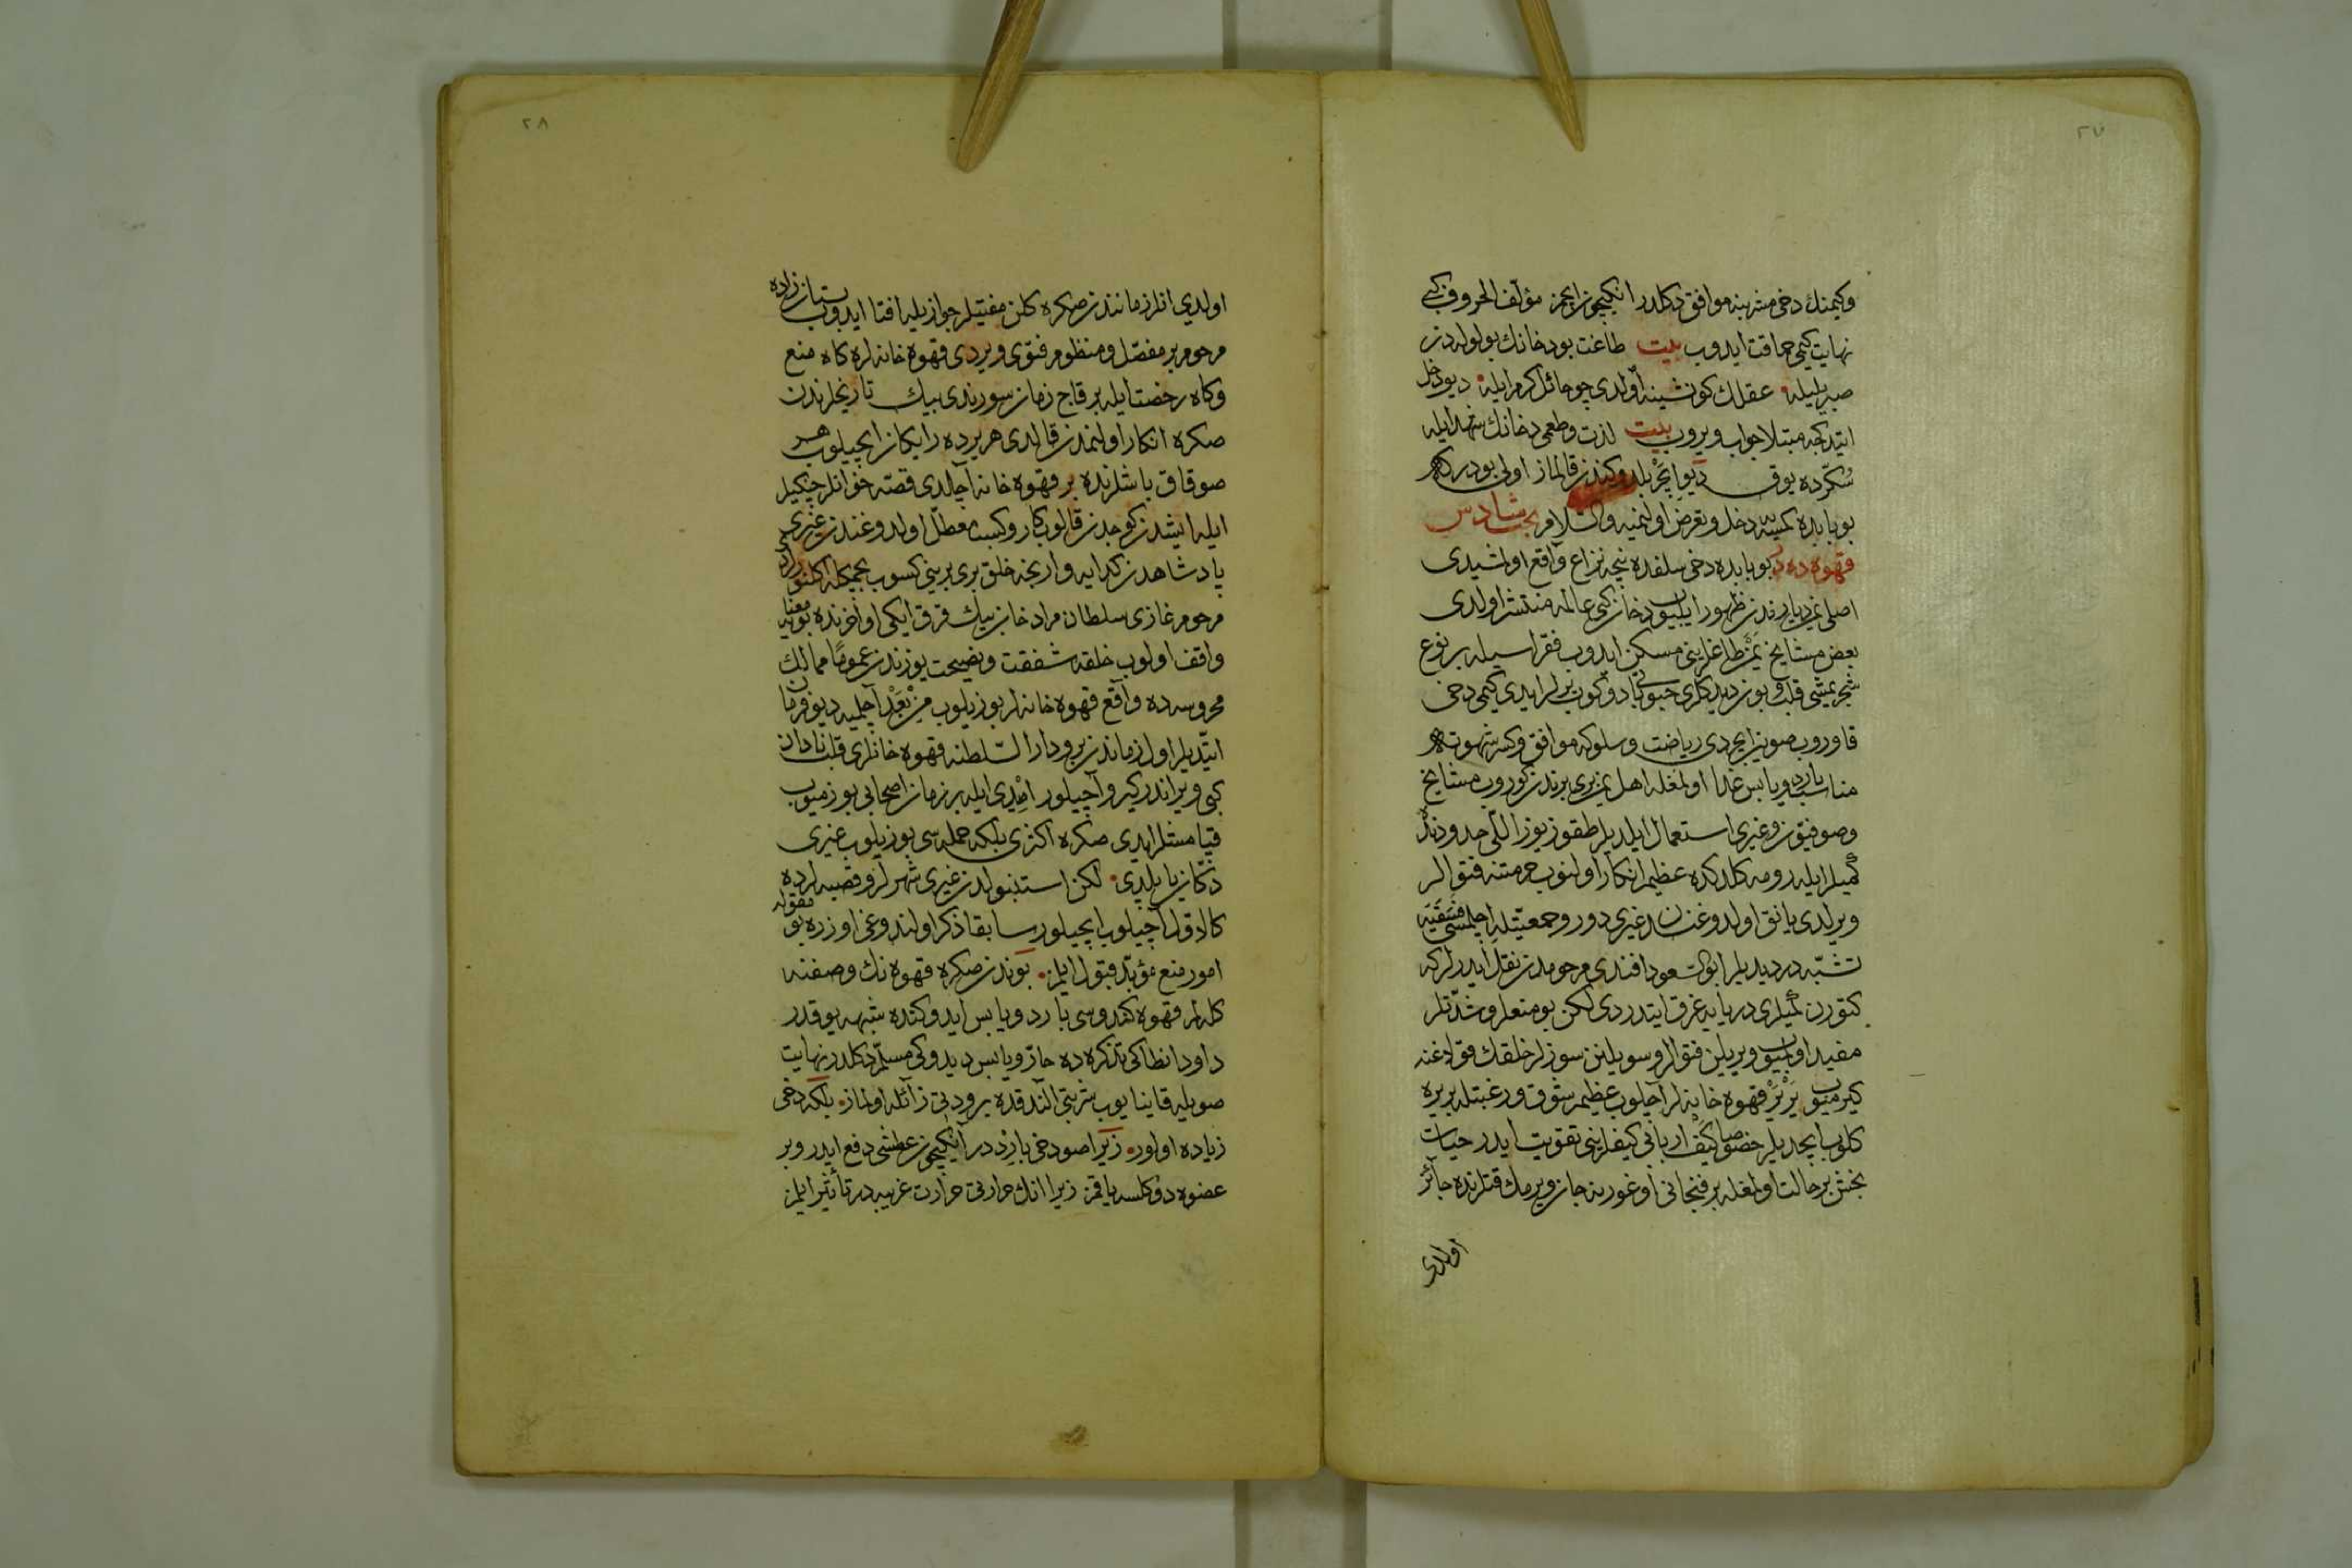 ٢٧
وكيمنك دخى مشربنه موافق دكلدر انكيچون ايچمز مؤلف الحروف كبى
نهايت كيمى حماقت ايدوب بيت طاغت بو دخانك بو لوله در
صبر ايليله عقلك كونشينه اولدى چو حائل كرم ايله ديو دخل
ايتدكجه مبتلا جواب ويروب بيت لذت وطعمى دخانك شهد ايله
سكرده يوق ديو ايچر بلدوكندن قالماز اولى بودر كه
بو بابده كمسيه دخل وتعرض اولنميه والسلام بحث سادس
قهوه ده در بو بابده دخى سلفده نيجه نزاع واقع اولمشيدى
اصلى يمن ديارندن ظهور ايليوب دخان كبى عالمه منتشر اولدى
بعض مشايخ يمن طاغلرينى مسكن ايدوب فقراسيله بر نوع
شجر يمشى قلب وبون ديدكلرى حبوبى دوكوب يرلر ايدى كيمى دخى
قاوروب صوين ايچردى رياضت وسلوكه موافق وكسر شهوته
مناسب بارد ويابس غذا اولمغله اهل يمن برى برندن كوروب مشايخ
وصوفيون وغيرى استعمال ايلديلر طقوز يوز اللى حدودنده
كميلر ايله رومه كلدكده عظيم انكار اولنوب حرمتنه فتوالر
ويرلدى يانق اولدوغندن غيرى دور وجمعيتله ايچلمسى فسقيه
تشبه در ديديلر ابو السعود افندى مرحومدن نقل ايدرلر كه
كتورن كميلرى دريايه غرق ايتدردى لكن بو منعلر وشدتلر
مفيد اولميوب ويريلن فتوالر وسويلنن سوزلر خلقك قولاغنه
كيرميوب ير ير قهوه خانه لر آچلوب عظيم شوق ورغبتله بر يره
كلوب ايچديلر خصوصا كيف اربابى كيفلرينى تقويت ايدر حيات
بخش بر حالت اولمغله بر فنجانى اوغورينه جان ويرمك قتلرنده جائز
اولدى
٢٨
اولدى انلر زمانندن صكره كلن مفتيلر جوازيله افتا ايدوب بستان زاده
مرحوم بر مفصل ومنظوم فتوى ويردى قهوه خانه لره كاه منع
وكاه رخصت ايله بر قاج زمان سورندى بيك تاريخلرندن
صكره انكار اولنمدن قالدى هر يرده رايكان ايچيلوب هر
صوقاق باشلرنده بر قهوه خانه آچلدى قصه خوانلر چنكيلر
ايله ايشدن كوجدن قالوب كار وكسب معطل اولدوغندن غيرى
پادشاهدن كدايه وارنجه خلق برى برينى كسوب بچمكله اكلنورلردى
مرحوم غازى سلطان مراد خان بيك قرق ايكى اواخرنده بو معنايه
واقف اولوب خلقه شفقت ونصيحت يوزندن عموما ممالك
محروسه ده واقع قهوه خانه لر بوزيلوب من بعد آچلميه ديو فرمان
ايتديلر اول زماندن برو دار السلطنه قهوه خانلرى قلب نادان
كبى ويراندر كيرو آچيلور اميدى ايله بر زمان اصحابى بوزميوب
قپامشلر ايدى صكره اكثرى بلكه جمله سى بوزيلوب غيرى
دكان ياپلدى لكن استنبولدن غيرى شهرلر وقصبه لرده
كالاول آچيلوب ايچيلور سابقا ذكر اولندوغى اوزره بو مقوله
امور منع مؤبد قبول ايلمز بوندن صكره قهوه نك وصفنه
كله لم قهوه كندوسى بارد ويابس ايدوكنده شبهه يوقدر
داود انطاكى تذكره ده حار ويابس ديدوكى مسلم دكلدر نهايت
صويله قاينايوب شربتى آلندقده برودتى زائله اولماز بلكه دخى
زياده اولور زيرا صو دخى بارددر آنكيچون عطشى دفع ايدر وبر
عضوه دوكلسه ياقمز زيرا انك حرارتى حرارت غريبه در تأثير ايلمز